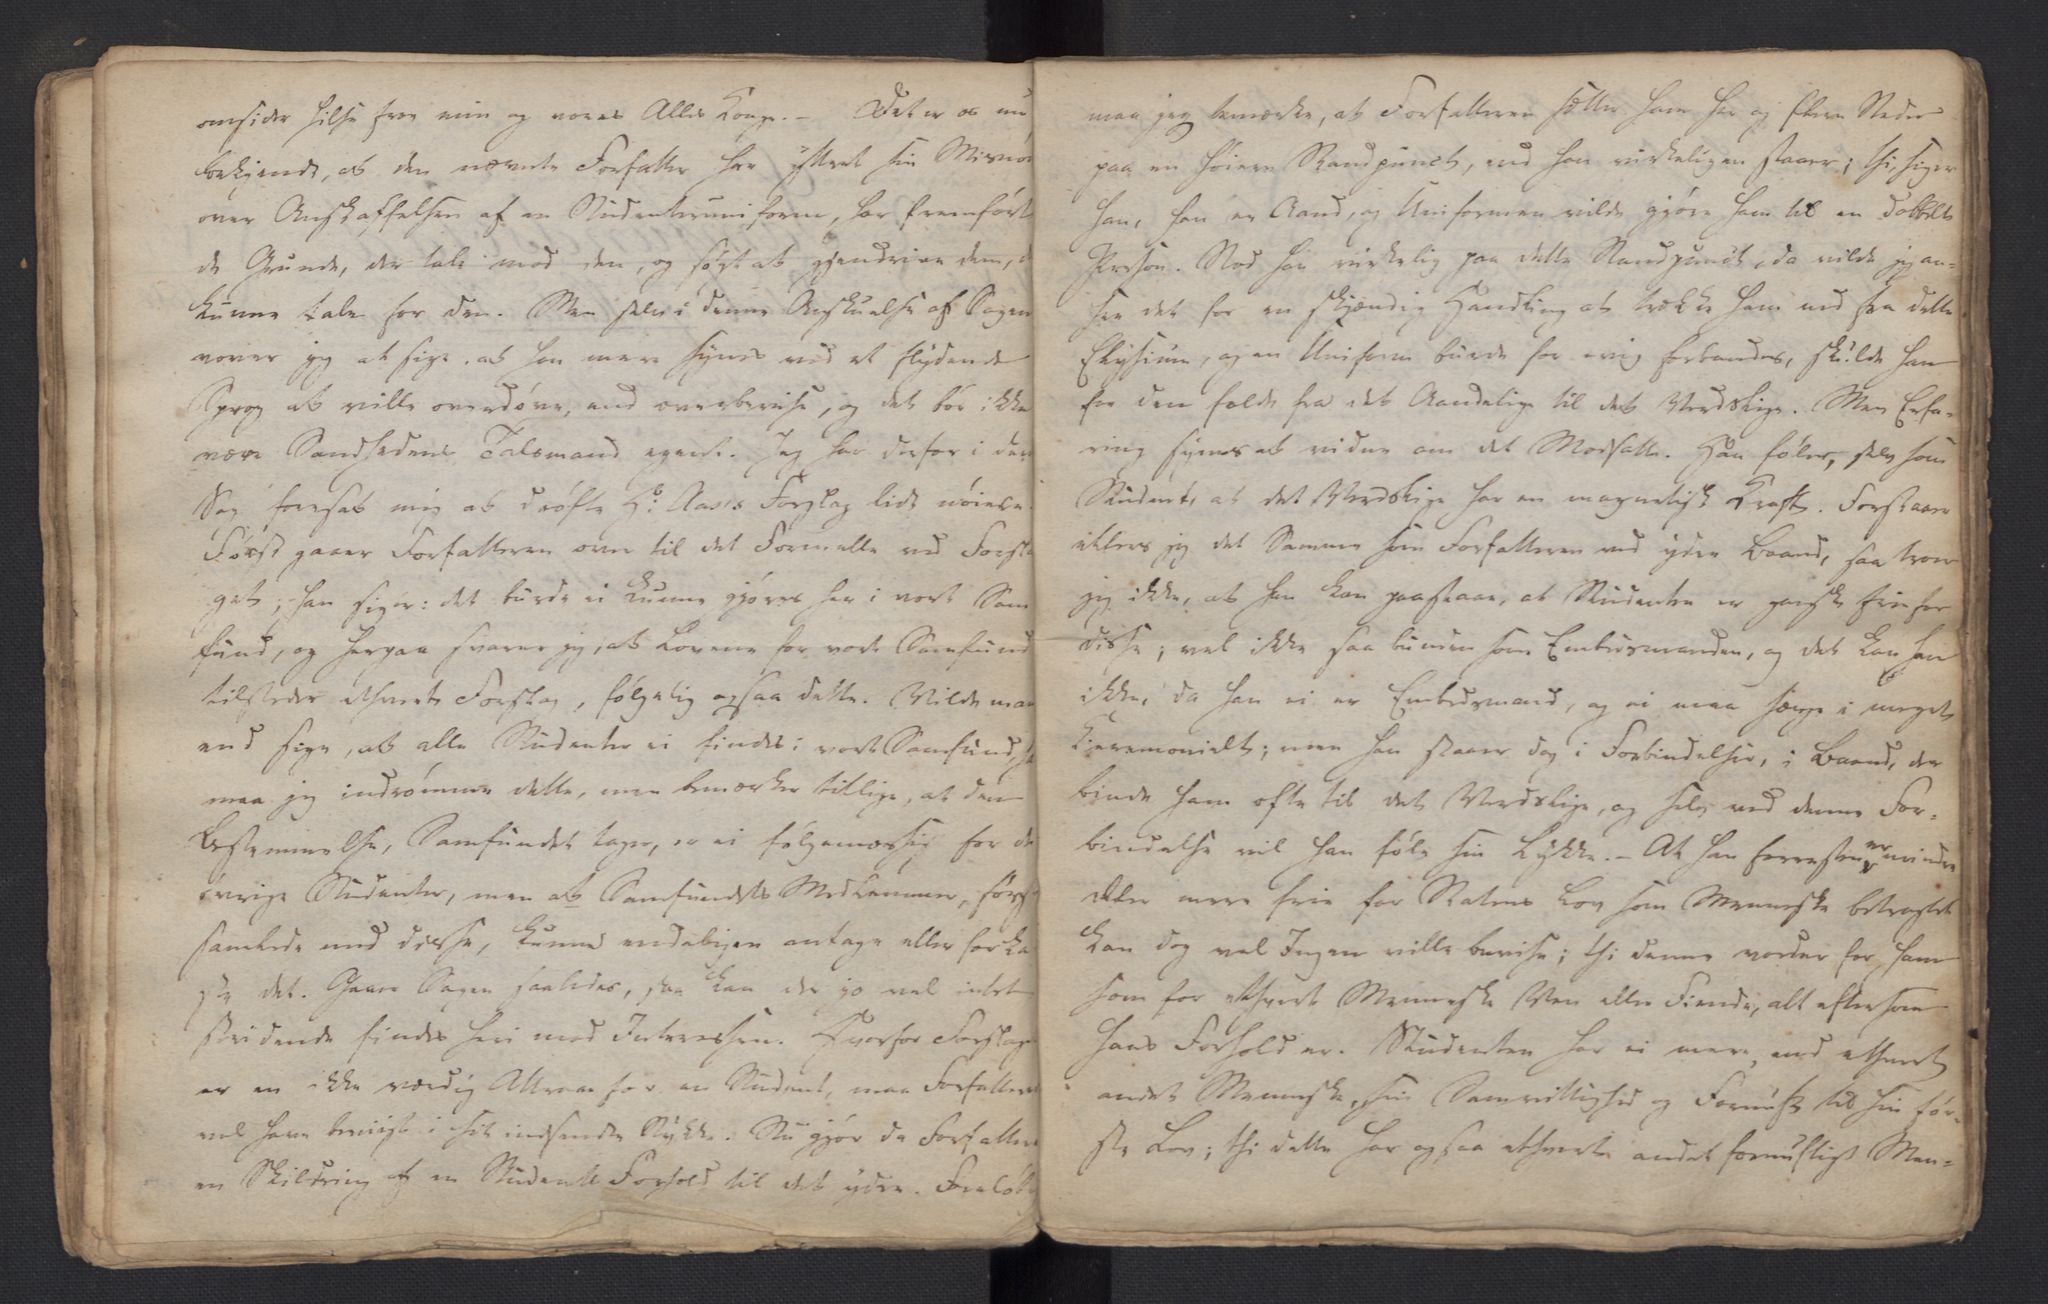 omsider hilse fra min og vores Alles Konge. – Det er os nu
bekjendt, at den nævnte Forfatter har yttret sin Misnøi
over Anskaffelsen af en Studenteruniform, har fremført
de Grunde, der tale mod den, og søgt at gjendrive dem, d
kunne tale for den. Men selv i denne Anskuelse af Sagen
vover jeg at sige, at han mere synes ved et flydende
Sprog at ville overdøve, end overbevise, og det bør ikke
være Sandhedens Talsmand egent. Jeg har derfor i den
Sag foresat mig at drøfte Hr. Aas's Forslag lidt nøiere.
Først gaaer Forfatteren over til det Formelle ved Forsla
get; han siger: det burde ei kunne gjøres her i vort Sam
fund, og herpaa svarer jeg, at Lovene for vort Samfund
tilsteder ethvert Forslag, følgelig ogsaa dette. Vilde man
end sige, at alle Studenter ei findes i vort Samfund, så
maa jeg indrømme dette, men bemærker tillige, at den
Bestemmelse, Samfundet tager, er ei følgemæssig for de
øvrige Studenter, men at Samfundets Medlemmer, først
samlede med disse, kunne endeligen antage eller forka
ste det. Gaaer Sagen saaledes, saa kan der jo vel intet
stridende findes heri mod Interessen. Hvorfor Forslag
er en ikke værdig Attraa for en Student, maa Forfatteren
vel have beviist i sit indsendte Stykke. Nu gjør da Forfatteren
en Skildring af en Students Forhold til det ydre. Foreløbig
maa jeg bemærke, at Forfatteren sætter ham her og flere Steder
paa en høiere Standpunct, end han virkeligen staaer; thi, siger
han, han er Aand, og Uniformen vilde gjøre ham til en dobbelt
Person. Stod han virkelig paa dette Standpunct, da vilde jeg an-
see det for en skjændig Handling at trække ham ned fra dette
Elysium, og en Uniform burde for evig forbandes, skulde han
for den falde fra det Aandelige til det Verdslige. Men Erfa-
ring synes at vidne om det Modsatte. Han føler, selv som
Student, at det Verdslige har en magnetisk Kraft. Forstaaer
ellers jeg det Samme som Forfatteren ved ydre Baand, saa troer
jeg ikke, at han kan paastaae, at Studenten er ganske frie for
disse; vel ikke saa bunden som Embedsmanden, og det kan han
ikke, da han ei er Embedsmand, og ei maa hænge i meget
Ceremonielt; men han staaer dog i Forbindelser, i Baand, der
binde ham ofte til det Verdslige, og selv ved denne For-
bindelse vil han føle sin Lykke. – At han forresten er mindre
eller mere frie for Statens Lov som Menneske betragtet
kan dog vel Ingen ville bevise; thi denne vorder for ham
som for ethvert Menneske Ven eller Fiende, alt eftersom
hans Forhold er. Studenten har ei mere, end ethvert
andet Menneske, sin Samvittighed og Fornuft til sin før-
ste Lov; thi dette har ogsaa ethvert andet fornuftigt Men-